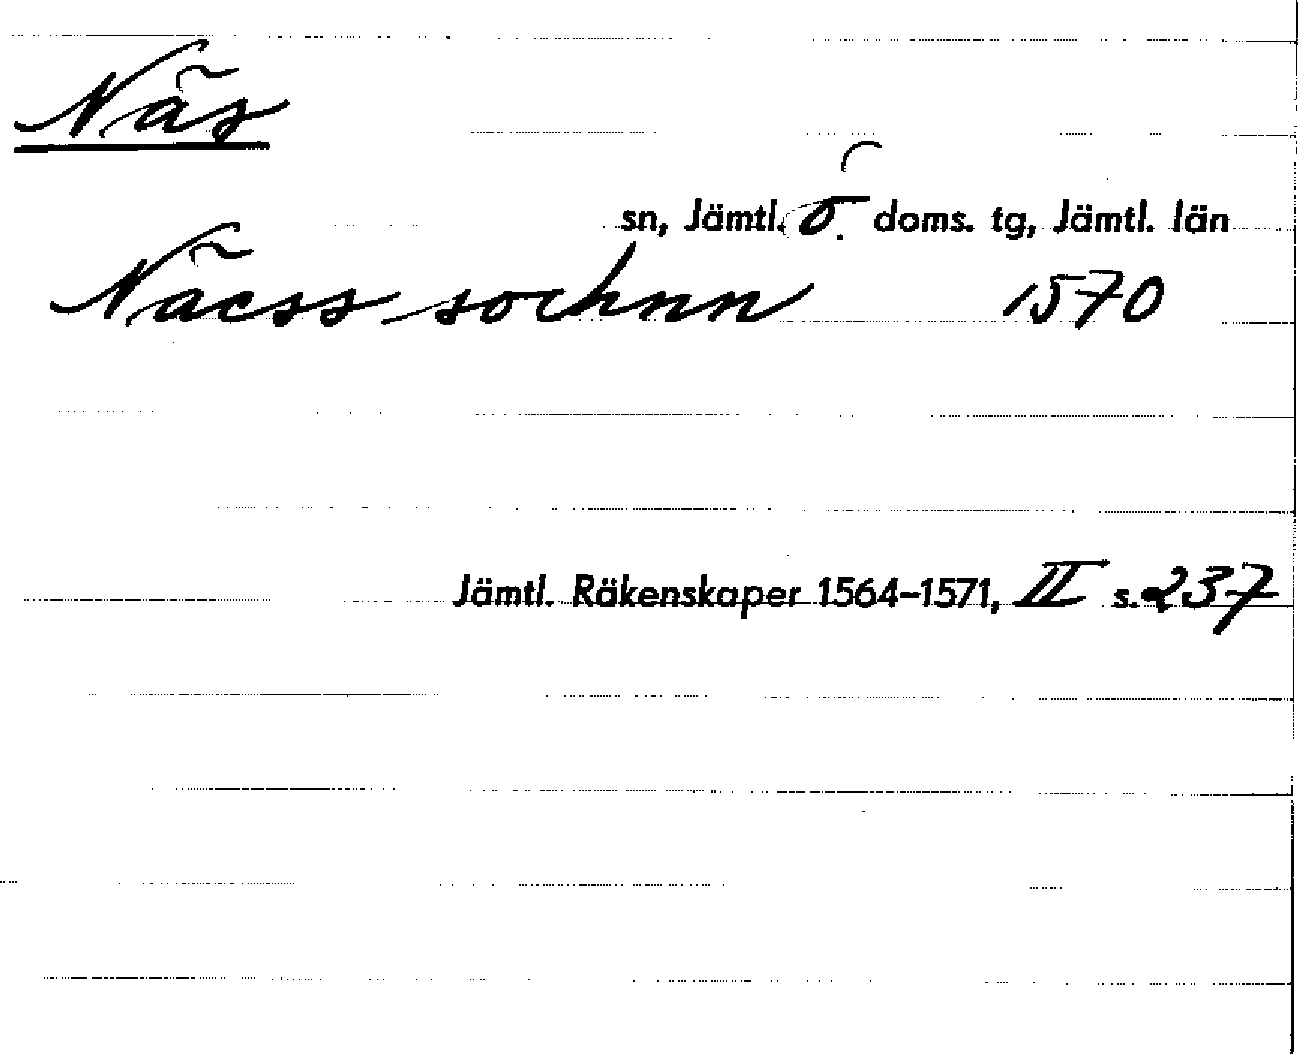 Näs
sn, Jämtl. ö. doms. tg, Jämtl. län
Näess sochnn 1570
Jämtl. Räkenskaper 1564–1571, II s. 237